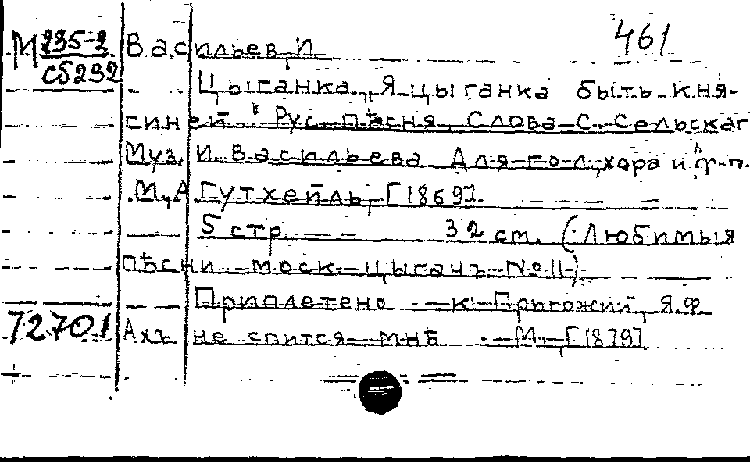 461
М 235-2 Васильев, И
сб 292
Цыганка, Я цыганка быть кня-
синей. Рус. пѣсня, Слова С. Сельскаг
Муз. И. Васильева Для гол., хора и ф-п.
М., А Гутхейль, [1869].
5 стр. 32 см. (Любимыя
пѣсни моск. цыганъ № 11)
Приплетено к Пригожий, Я.Ф.
72701 Ахъ не спится мнѣ. М., [1879]